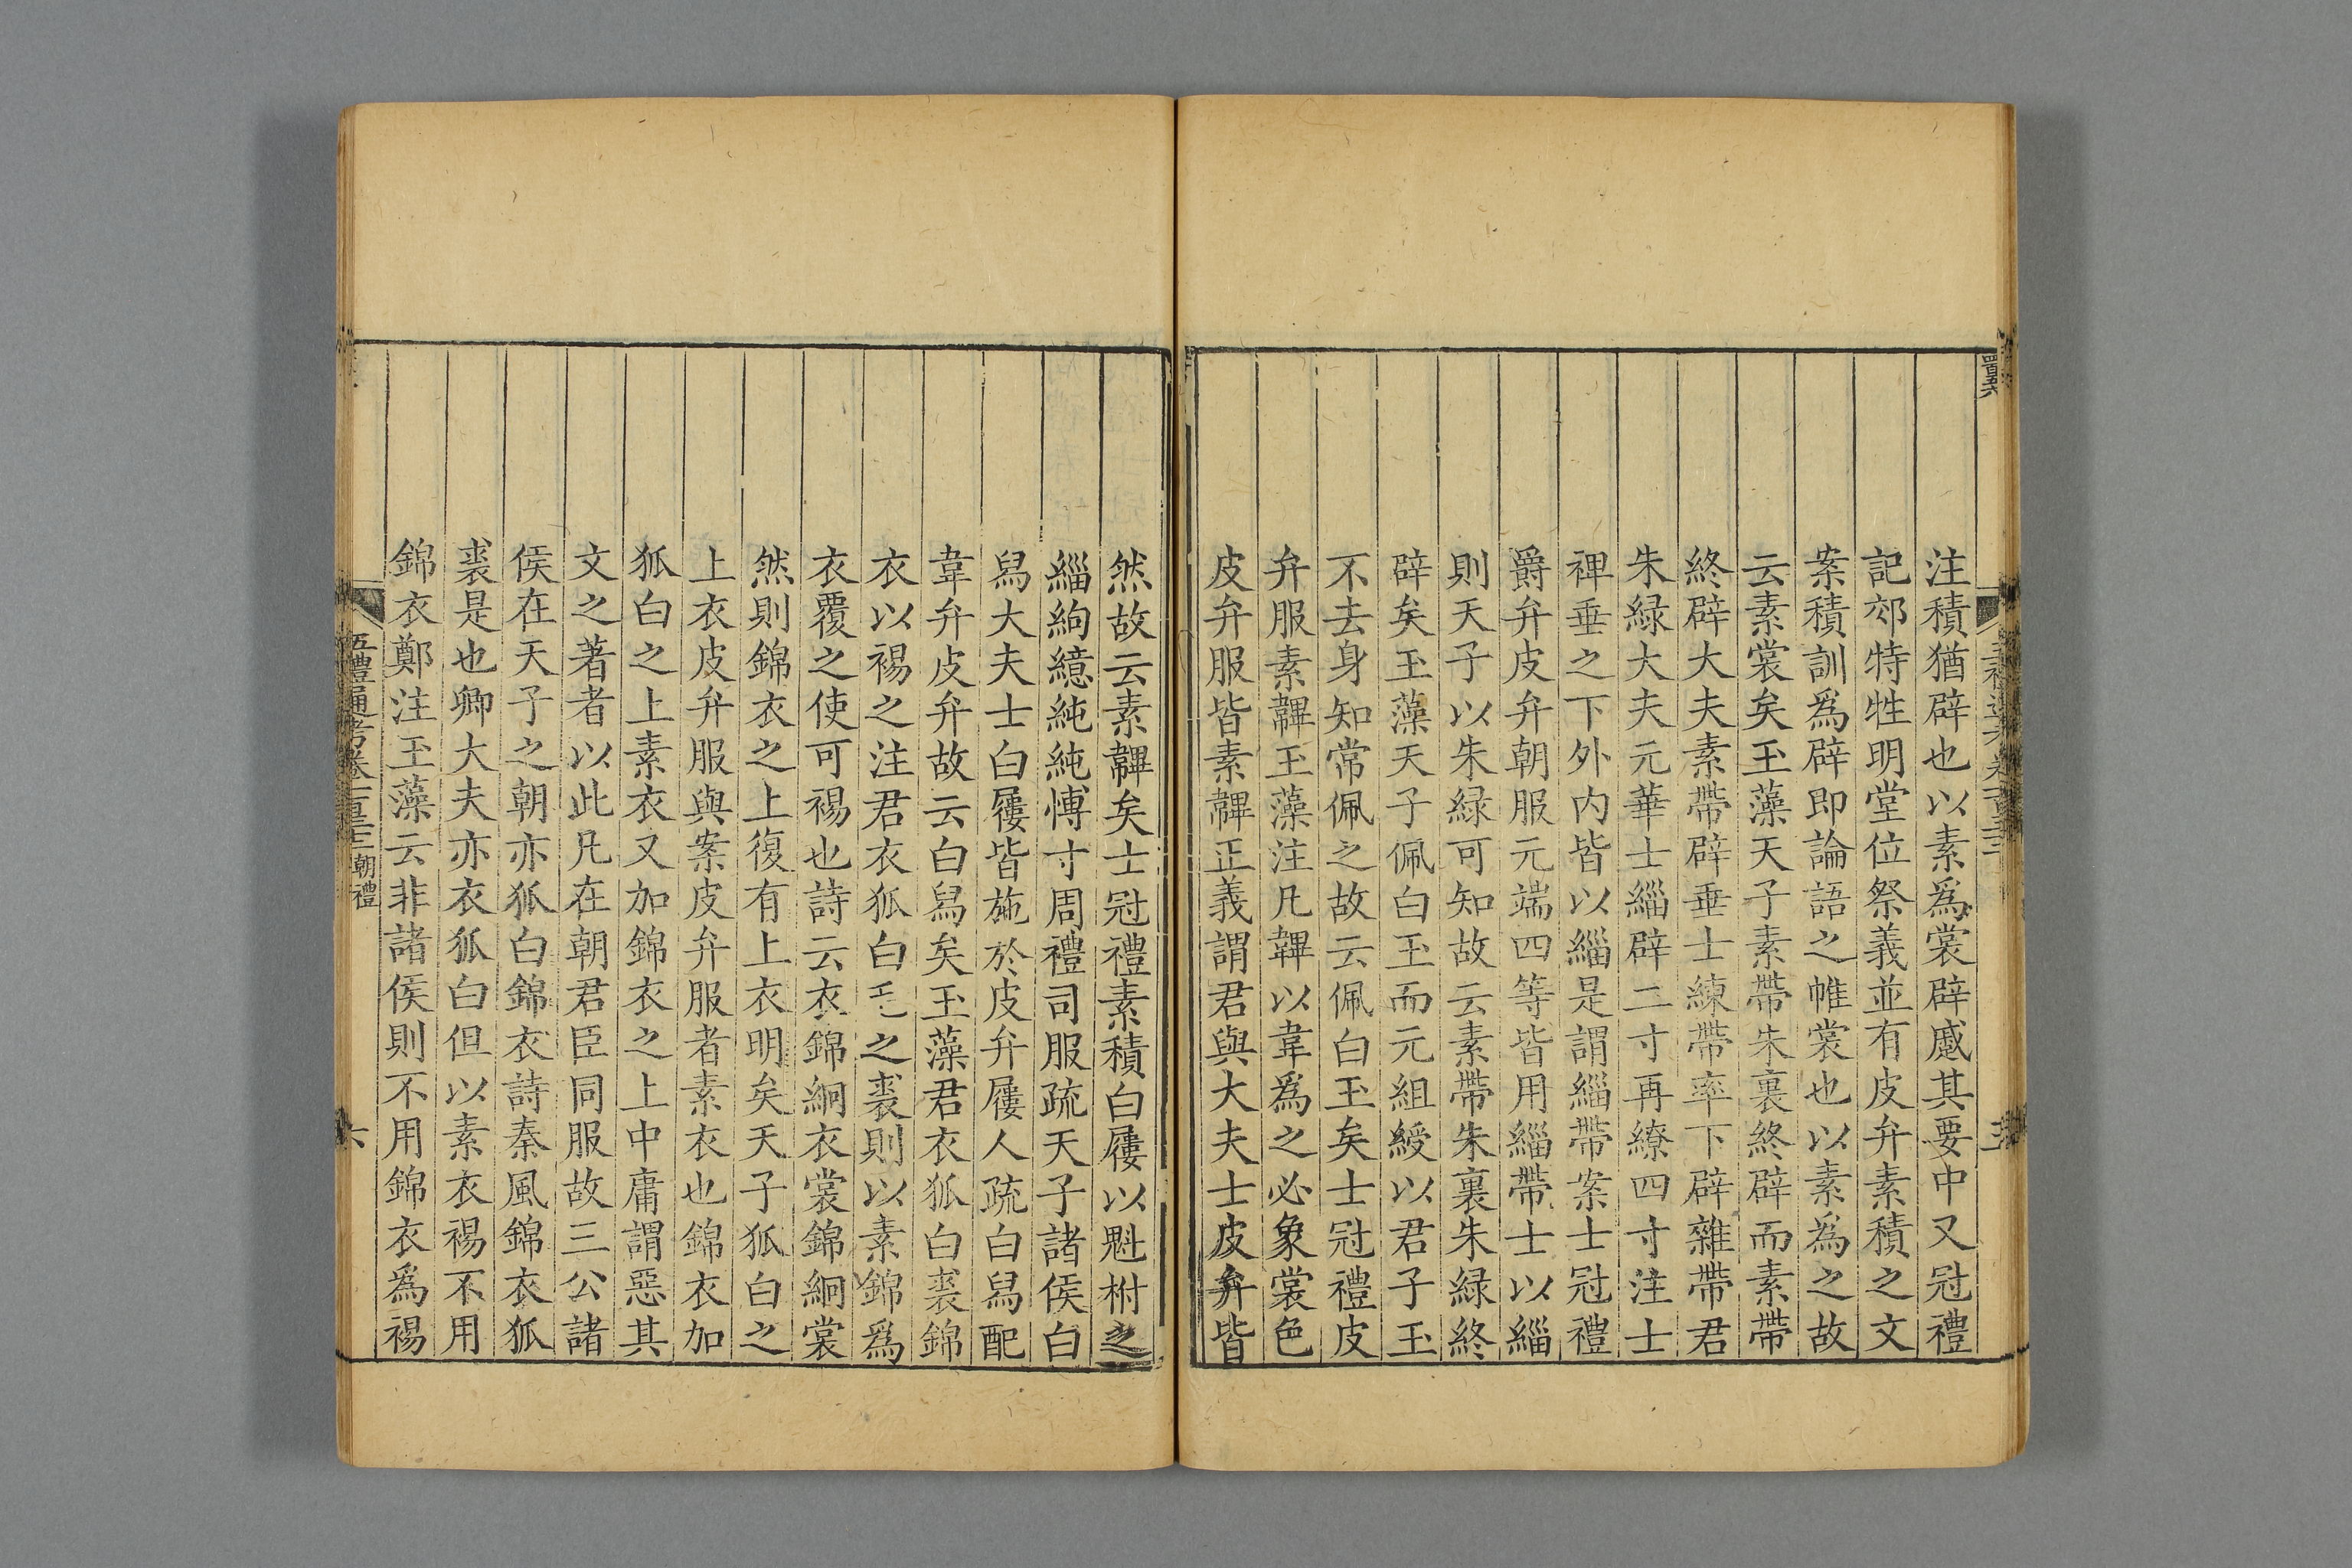 注積猶辟也以素爲裳辟蹙其要中又冠禮
記郊特牲明堂位祭義並有皮弁素積之文
案積訓爲辟即論語之帷裳也以素為之故
云素裳矣玉藻天子素帶朱裏終辟而素帶
終辟大夫素帶辟垂士練帶率下辟雜帶君
朱緑大夫元華士緇辟二寸再繚四寸注士
裨垂之下外内皆以緇是謂緇帶案士冠禮
爵弁皮弁朝服元端四等皆用緇帶士以緇
則天子以朱緑可知故云素帶朱裏朱緑終
辟矣玉藻天子佩白玉而元組綬以君子玉
不去身知常佩之故云佩白玉矣士冠禮皮
弁服素韠玉藻注凡韠以韋爲之必象裳色
皮弁服皆素韠正義謂君與大夫士皮弁皆
然故云素韠矣士冠禮素積白屨以魁柎之
緇絢繶純純博寸周禮司服疏天子諸侯白
舄大夫士白屨皆施於皮弁屨人疏白舄配
韋弁皮弁故云白舄矣玉藻君衣狐白裘錦
衣以裼之注君衣狐白毛之裘則以素錦爲
衣覆之使可裼也詩云衣錦絅衣裳錦絅裳
然則錦衣之上復有上衣明矣天子狐白之
上衣皮弁服與案皮弁服者素衣也錦衣加
狐白之上素衣又加錦衣之上中庸謂惡其
文之著者以此凡在朝君臣同服故三公諸
侯在天子之朝亦狐白錦衣詩秦風錦衣狐
裘是也卿大夫亦衣狐白但以素衣裼不用
錦衣鄭注玉藻云非諸侯則不用錦衣爲裼
五禮通考卷一百三十二 朝禮
六